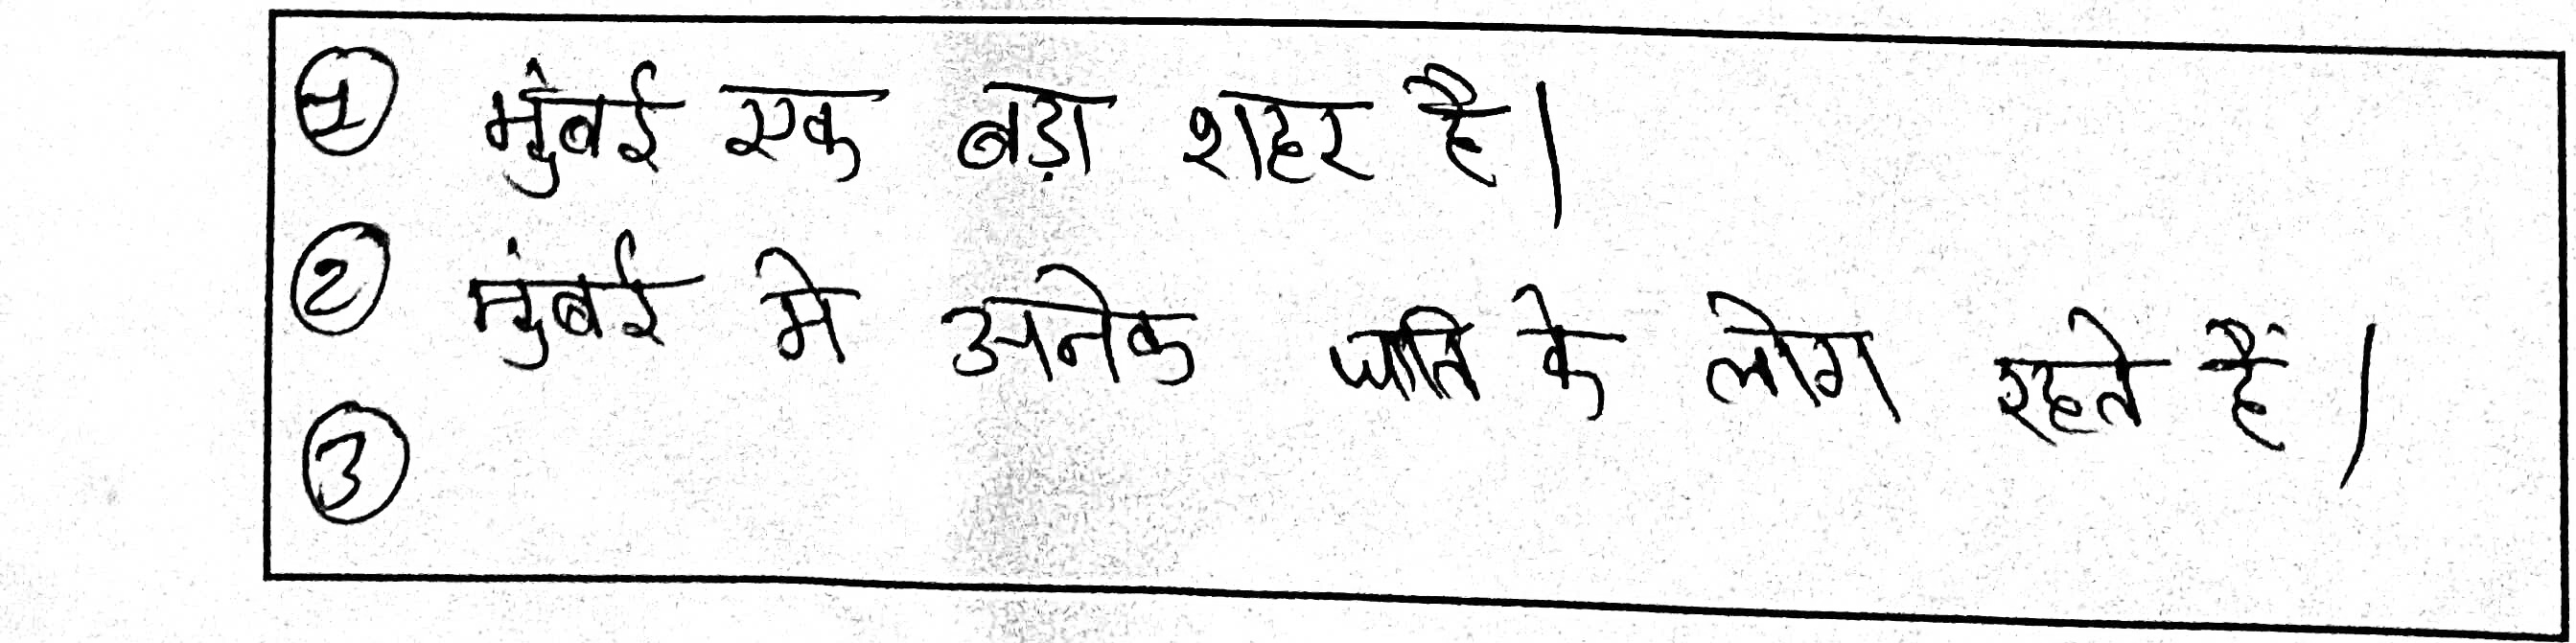 ① मुंबई एक बड़ा शहर है।
② मुंबई मे अनेक के लोग रहते हैं।
③